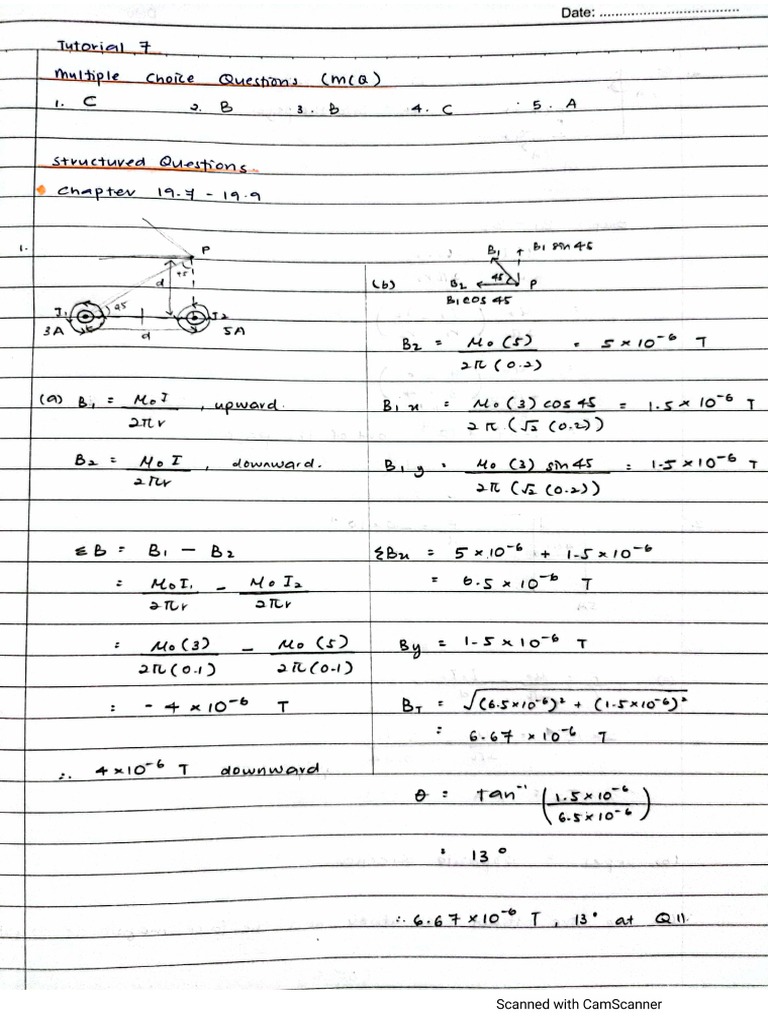 Date: ....................................
Tutorial 7
Multiple Choice Questions (MCQ)
1. C 2. B 3. B 4. C 5. A
Structured Questions
Chapter 19.7 - 19.9
1.
P
45
d
I₁
45
I₂
3A
d
5A
(a) B₁ = M₀I / 2πr , upward.
B₂ = M₀I / 2πr , downward.
ΣB = B₁ - B₂
= M₀I₁ / 2πr - M₀I₂ / 2πr
= M₀(3) / 2π(0.1) - M₀(5) / 2π(0.1)
= - 4 × 10⁻⁶ T
∴ 4×10⁻⁶ T downward
(b)
B₁ B₁ sin 45
B₂ 45 P
B₁ cos 45
B₂ = M₀(5) / 2π(0.2) = 5 × 10⁻⁶ T
B₁x = M₀(3) cos 45 / 2π(√2 (0.2)) = 1.5 × 10⁻⁶ T
B₁y = M₀(3) sin 45 / 2π(√2 (0.2)) = 1.5 × 10⁻⁶ T
ΣBx = 5 × 10⁻⁶ + 1.5 × 10⁻⁶
= 6.5 × 10⁻⁶ T
By = 1.5 × 10⁻⁶ T
B_T = √((6.5×10⁻⁶)² + (1.5×10⁻⁶)²)
= 6.67 × 10⁻⁶ T
θ = tan⁻¹ (1.5×10⁻⁶ / 6.5×10⁻⁶)
= 13°
∴ 6.67 × 10⁻⁶ T, 13° at Q II.
Scanned with CamScanner